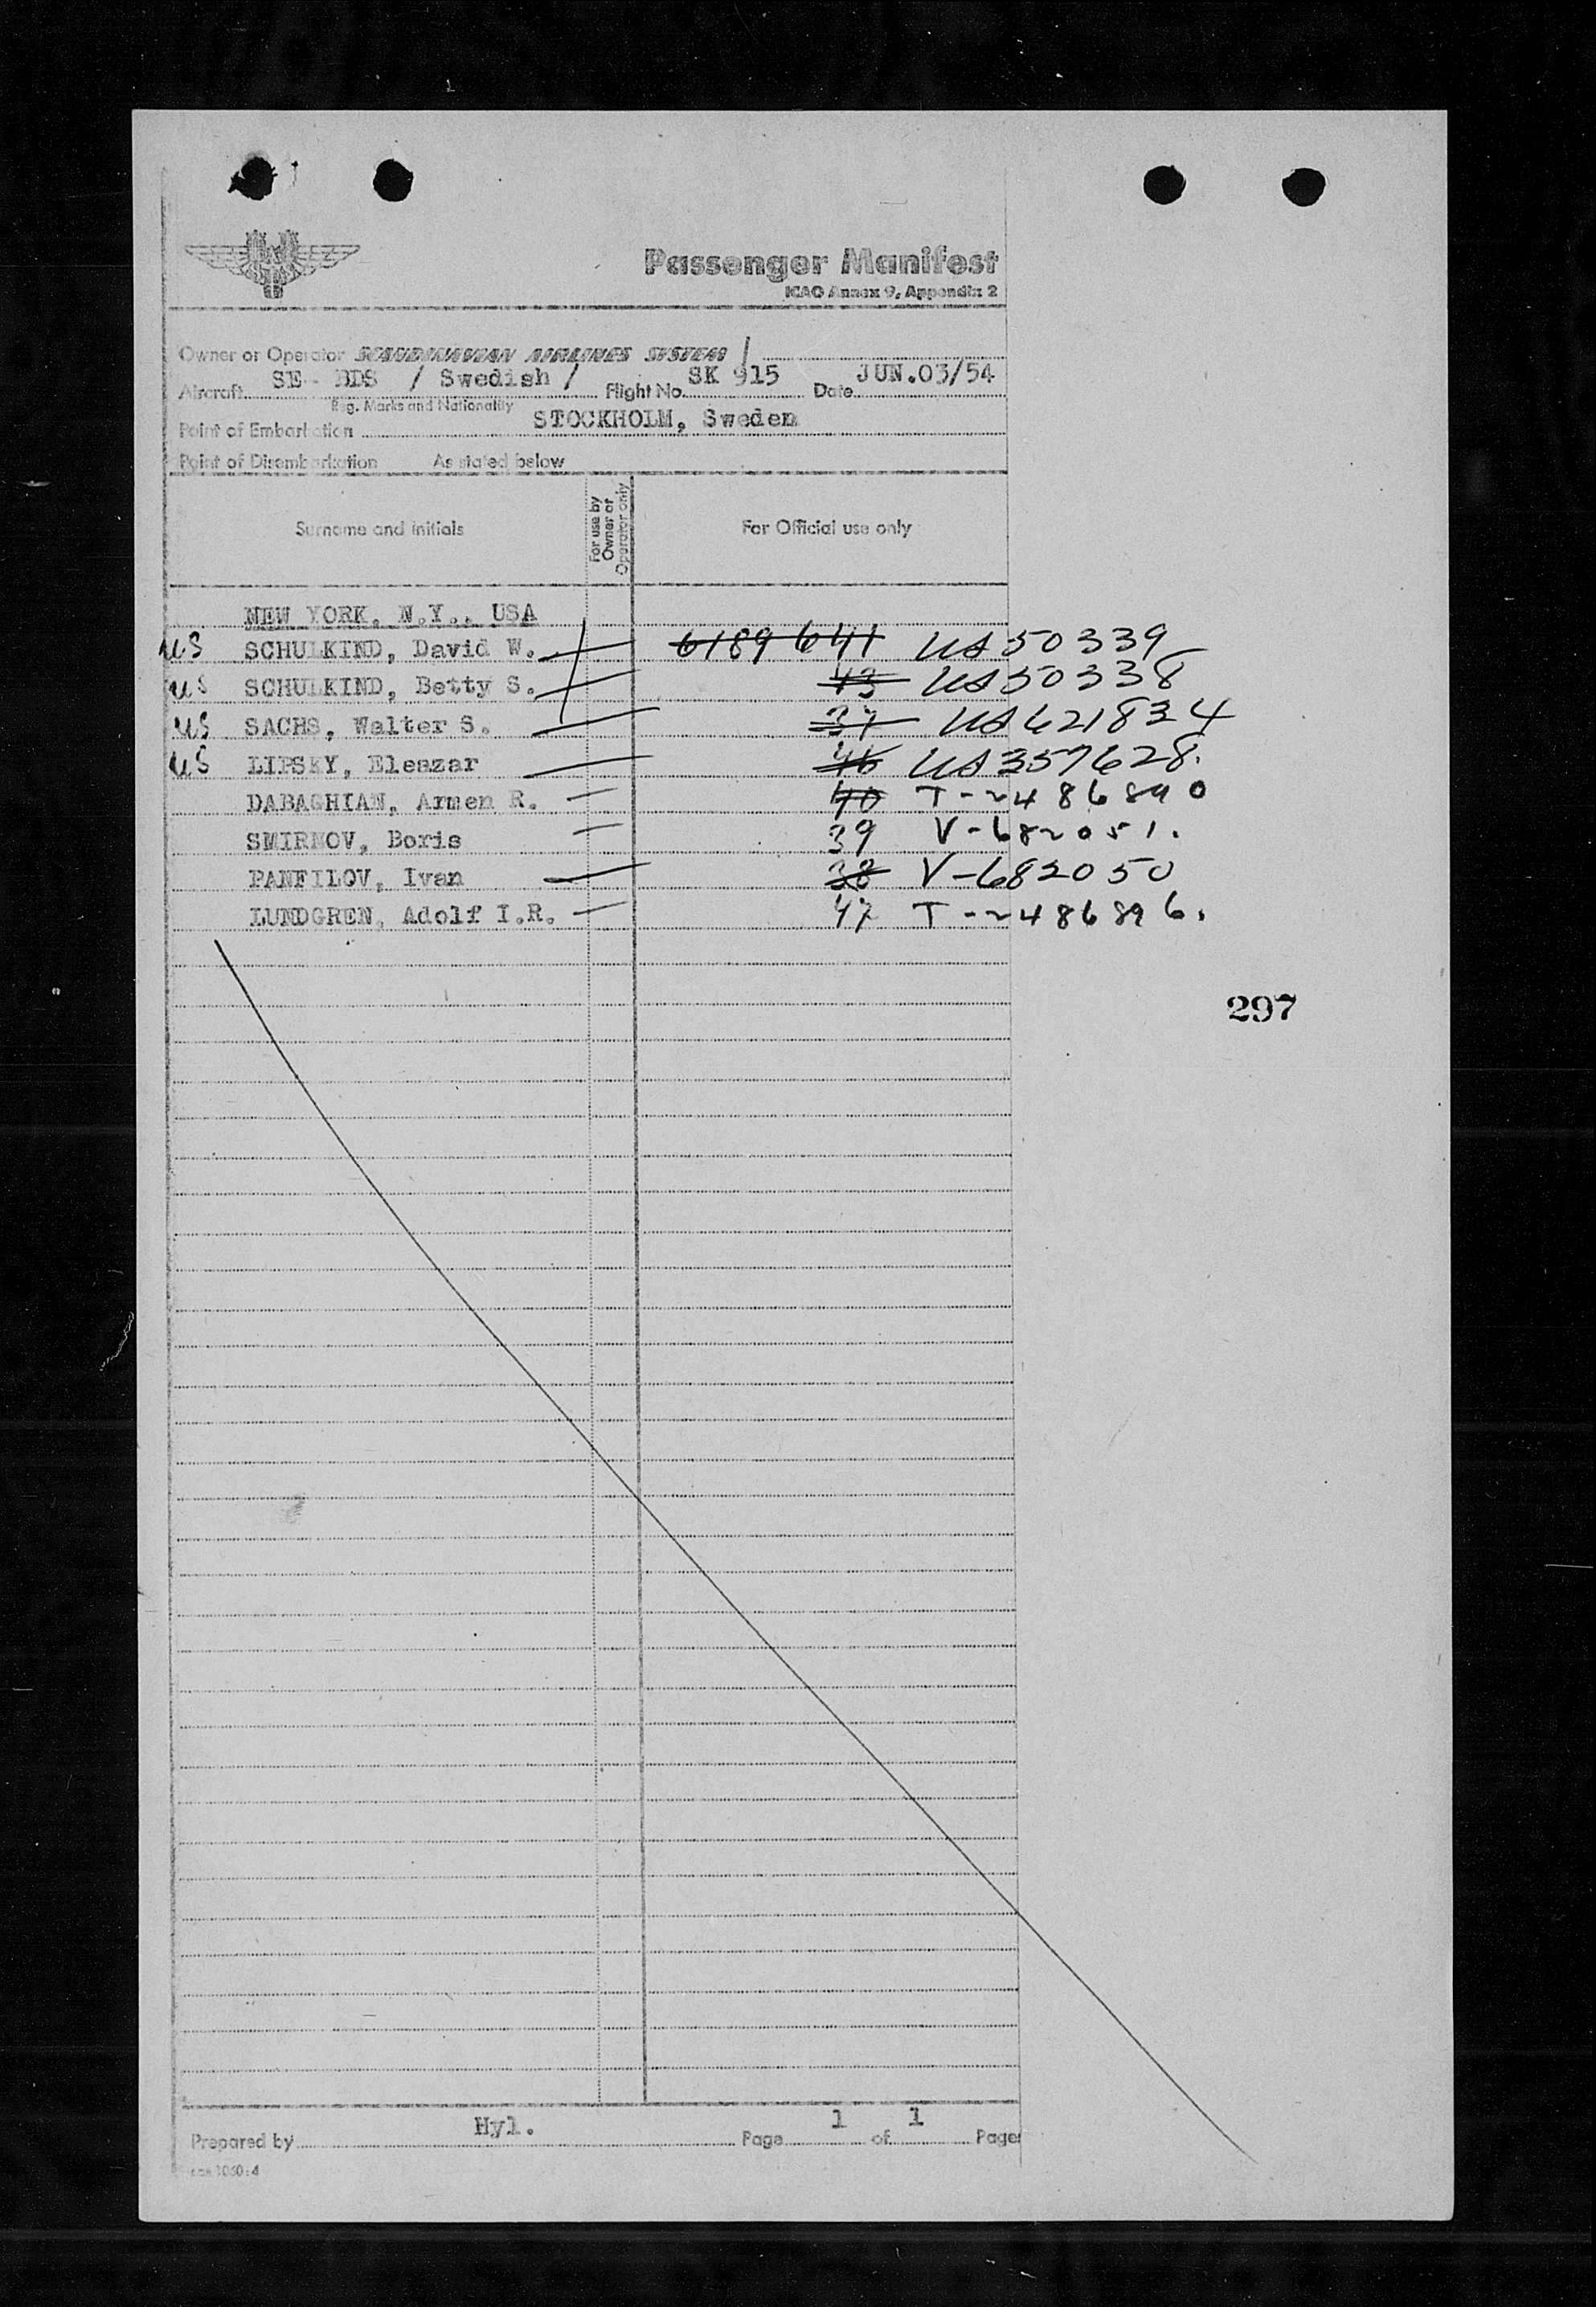 Passenger Manifest
ICAO Annex 9, Appendix 2
Owner or Operator SCANDINAVIAN AIRLINES SYSTEM /
Aircraft SE - BDS / Swedish / Flight No. SK 915 Date JUN.03/54
Reg. Marks and Nationality
Point of Embarkation STOCKHOLM, Sweden
Point of Disembarkation As stated below
Surname and initials For use by Owner or Operator only For Official use only
NEW YORK, N.Y., USA
US SCHULKIND, David W. 6189 641 US 50339
US SCHULKIND, Betty S. 43 US 50338
US SACHS, Walter S. 37 US 621834
US LIPSKY, Eleazar 46 US 357628.
DABAGHIAN, Armen R. 40 T-2486890
SMIRNOV, Boris 39 V-682051.
PANFILOV, Ivan 38 V-682050
LUNDGREN, Adolf I.R. 47 T-2486896.
297
Prepared by Hyl. Page 1 of 1 Pages